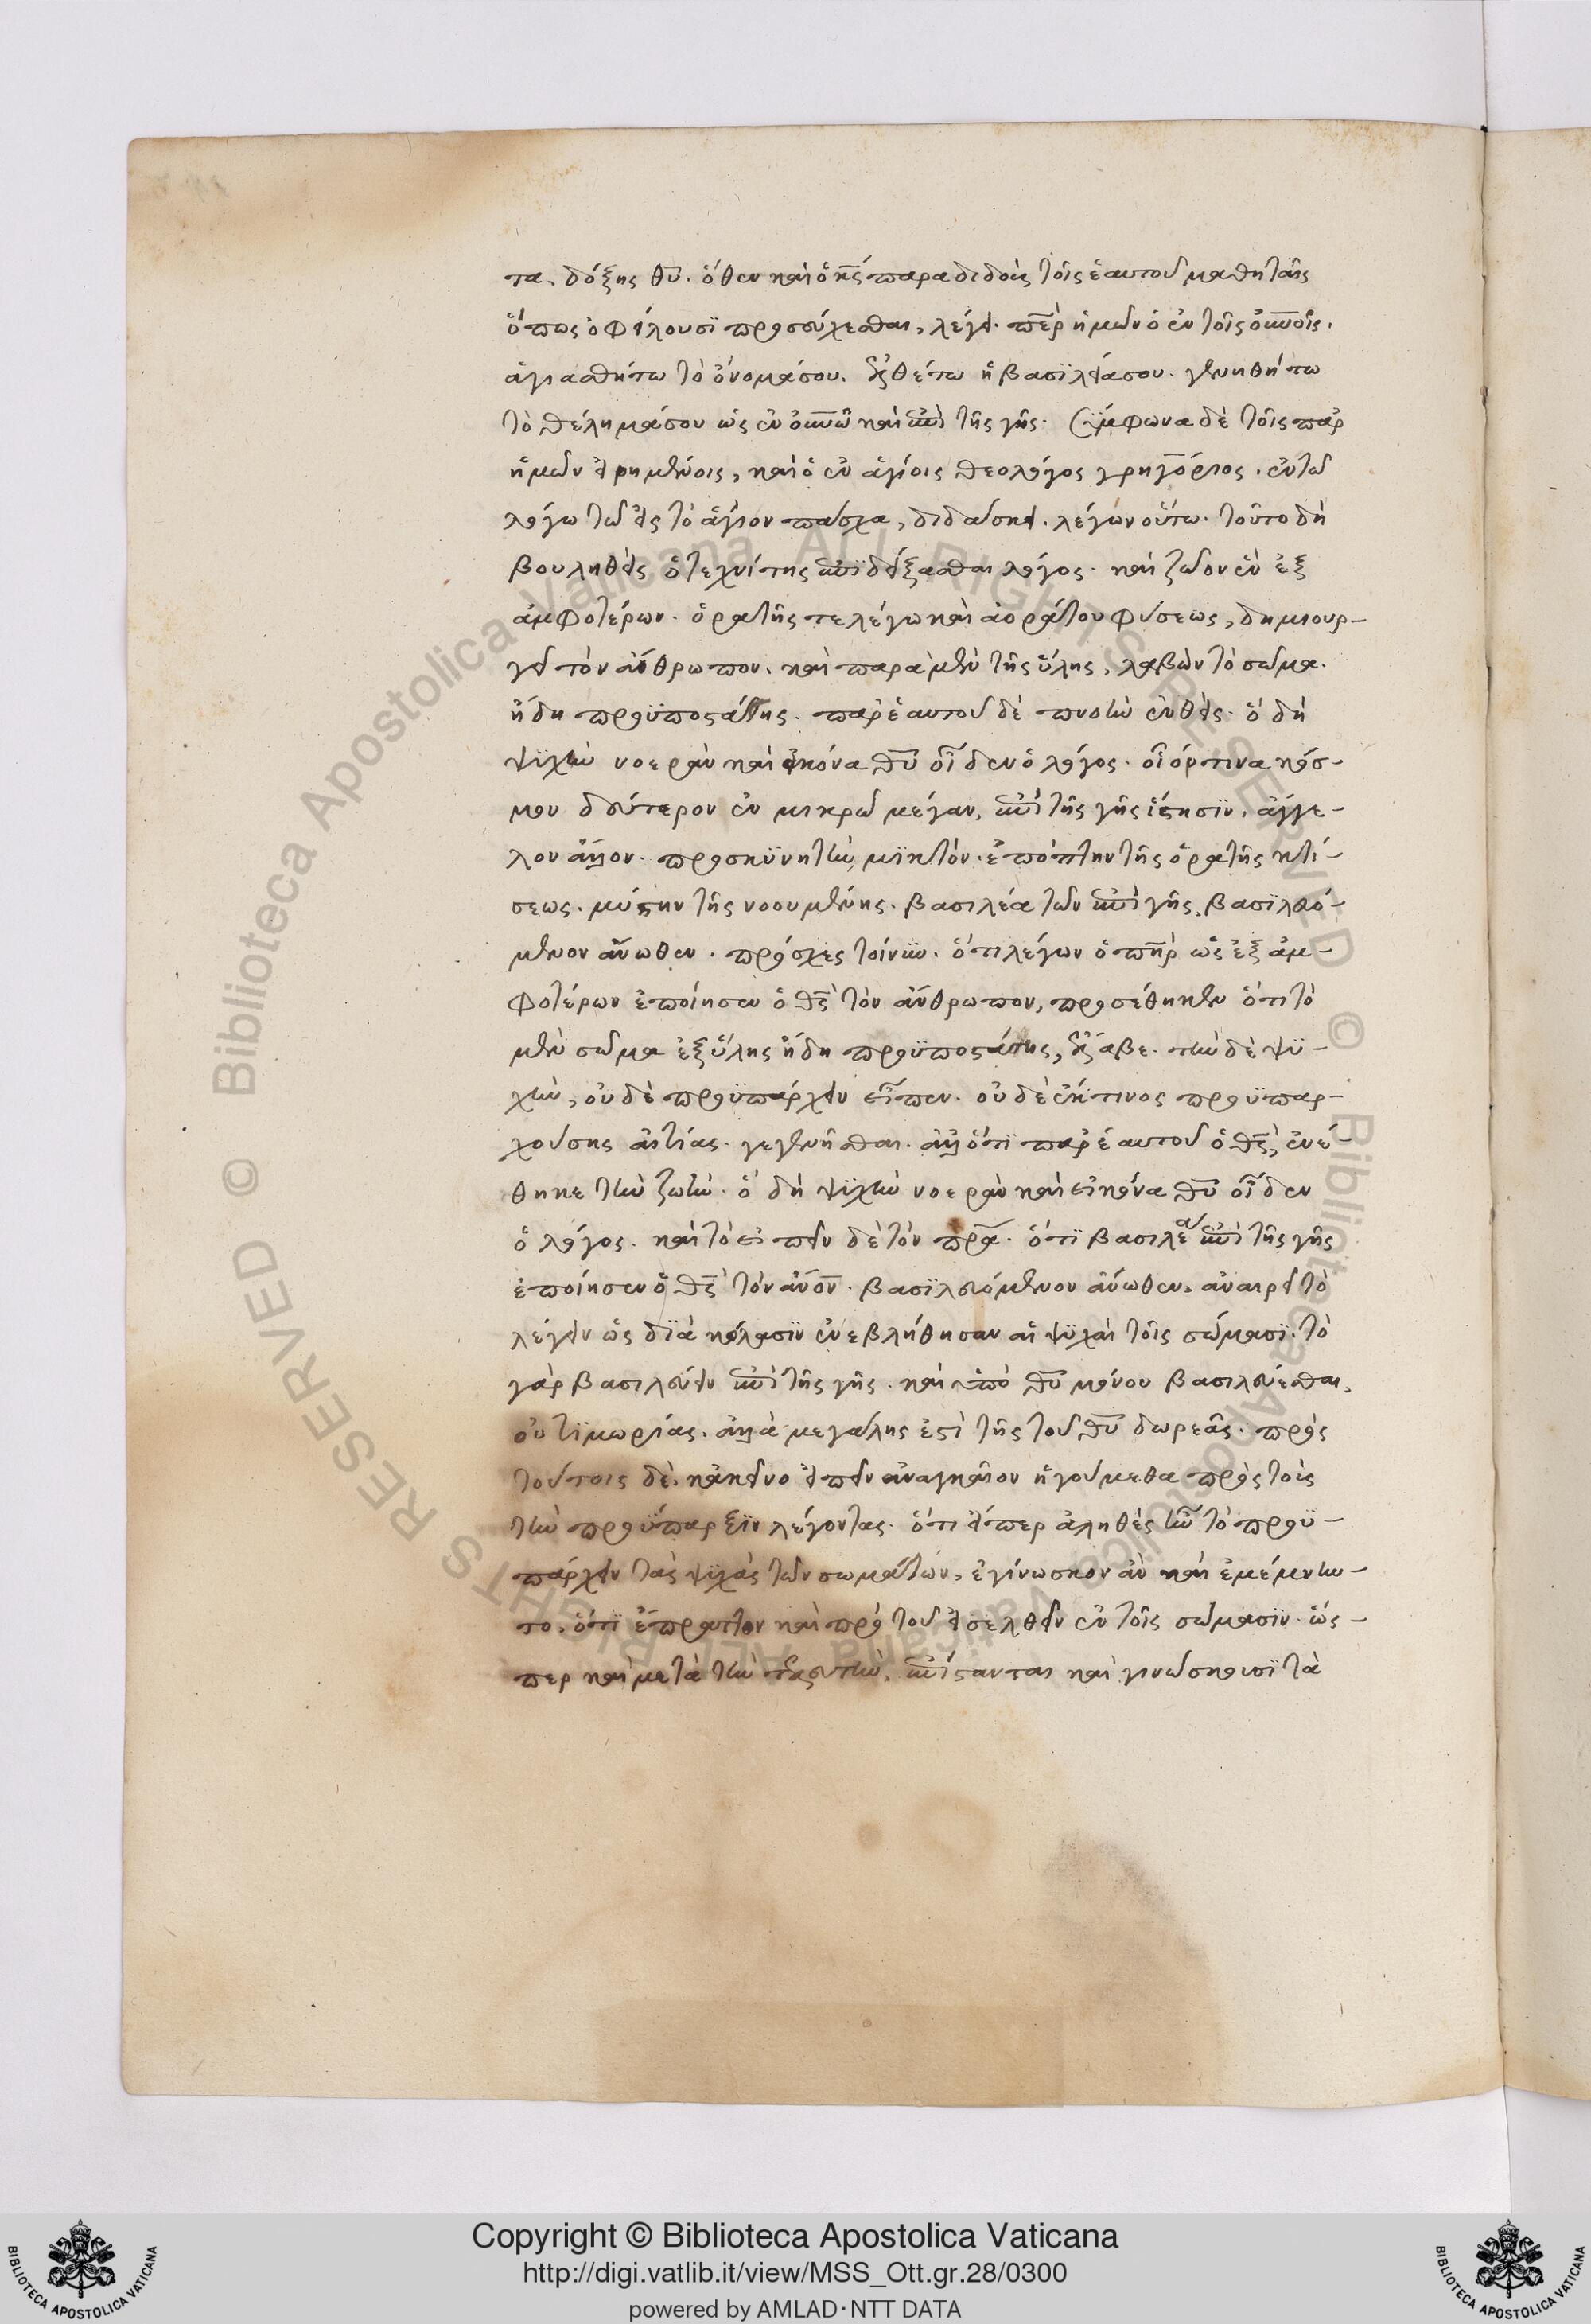 τα. δόξης θῦ. ὅθεν καὶ ὁ κς παραδιδοὺς τοῖς ἑαυτοῦ μαθηταῖς
ὅπως ὀφείλουσϊ προσεύχεσθαι, λέγει. περ ἡμῶν ὁ ἐν τοῖς οὐνοῖς.
ἁγιασθήτω τὸ ὄνομάσου. ἐλθέτω ἡ βασϊλείασου. γενηθήτω
τὸ θέλημάσου ὡς ἐν οὐνῶ καὶ ἐπὶ τῆς γῆς. σύμφωνα δὲ τοῖς παρ
ἡμῶν εἰρημένοις, καὶ ὁ ἐν ἁγίοις θεολόγος γρηγόριος. ἐν τῶ
λόγω τῶ εἰς τὸ ἅγιον πάσχα, διδάσκει. λέγων οὕτω. τοῦτο δὴ
βουληθεὶς ὁ τεχνίτης ἐπϊδείξασθαι λόγος. καὶ ζῶον ἓν ἐξ
ἀμφοτέρων. ὁρατῆς τε λέγω καὶ ἀοράτου φύσεως, δημιουρ-
γεῖ τὸν ἄνθρωπον. καὶ παρὰ μὲν τῆς ὕλης, λαβὼν τὸ σῶμα.
ἤδη προϋποστάσης. παρ ἑαυτοῦ δὲ πνοὴν ἐνθεὶς. ὃ δὴ
ψϋχὴν νοερὰν καὶ εἰκόνα θῦ οἶδεν ὁ λόγος. οἷόν τινα κόσ-
μον δεύτερον ἐν μικρῶ μέγαν, ἐπὶ τῆς γῆς ἵστησϊν. ἄγγε-
λον ἄλλον. προσκϋνητὴν μϊκτόν. ἐπόπτην τῆς ὁρατῆς κτί-
σεως. μύστην τῆς νοουμένης. βασιλέα τῶν ἐπὶ γῆς, βασϊλευό-
μενον ἄνωθεν. πρόσχες τοίνϋν. ὅτι λέγων ὁ πηρ ὡς ἐξ ἀμ-
φοτέρων ἐποίησεν ὁ θς τὸν ἄνθρωπον, προσέθηκεν ὅτι τὸ
μὲν σῶμα ἐξ ὕλης ἤδη προϋποστάσης, ἔλαβε. τὴν δὲ ψϋ-
χὴν, οὐδὲ προϋπάρχειν εἶπεν. οὐδὲ ἔκ τινος προϋπαρ-
χούσης αἰτίας. γεγενῆσθαι. ἀλλ ὅτϊ παρ ἑαυτοῦ ὁ θς, ἐνέ-
θηκε τὴν ζωὴν. ὃ δὴ ψϋχὴν νοερὰν καὶ εἰκόνα θῦ οἶδεν
ὁ λόγος. καὶ τὸ εἰπεῖν δὲ τὸν πρα. ὅτϊ βασιλέα ἐπὶ τῆς γῆς
ἐποίησεν ὁ θς τὸν ἄνον. βασϊλευόμενον ἄνωθεν, ἀναιρεῖ τὸ
λέγειν ὡς δϊὰ κόλασϊν ἐνεβλήθησαν αἱ ψϋχαὶ τοῖς σώμασϊ. τὸ
γὰρ βασιλεύειν ἐπὶ τῆς γῆς. καὶ ὑπὸ θῦ μόνου βασιλεύεσθαι,
οὐ τϊμωρίας. ἀλλὰ μεγάλης ἐστὶ τῆς τοῦ θῦ δωρεᾶς. πρὸς
τούτοις δὲ. κἀκεῖνο εἰπεῖν ἀναγκαῖον ἡγούμεθα πρὸς τοὺς
τὴν προύπαρξϊν λέγοντας. ὅτι εἴπερ ἀληθὲς ἦν τὸ προϋ-
πάρχειν τὰς ψϋχὰς τῶν σωμάτων, ἐγίνωσκον ἂν καὶ ἐμέμνην-
το. ὅτϊ ἔπραττον καὶ πρὸ τοῦ εἰσελθεῖν ἐν τοῖς σώμασϊν. ὥς-
περ καὶ μετὰ τὴν τελευτὴν, ἐπίστανται καὶ γινώσκουσϊ τὰ
Copyright © Biblioteca Apostolica Vaticana
http://digi.vatlib.it/view/MSS_Ott.gr.28/0300
powered by AMLAD·NTT DATA